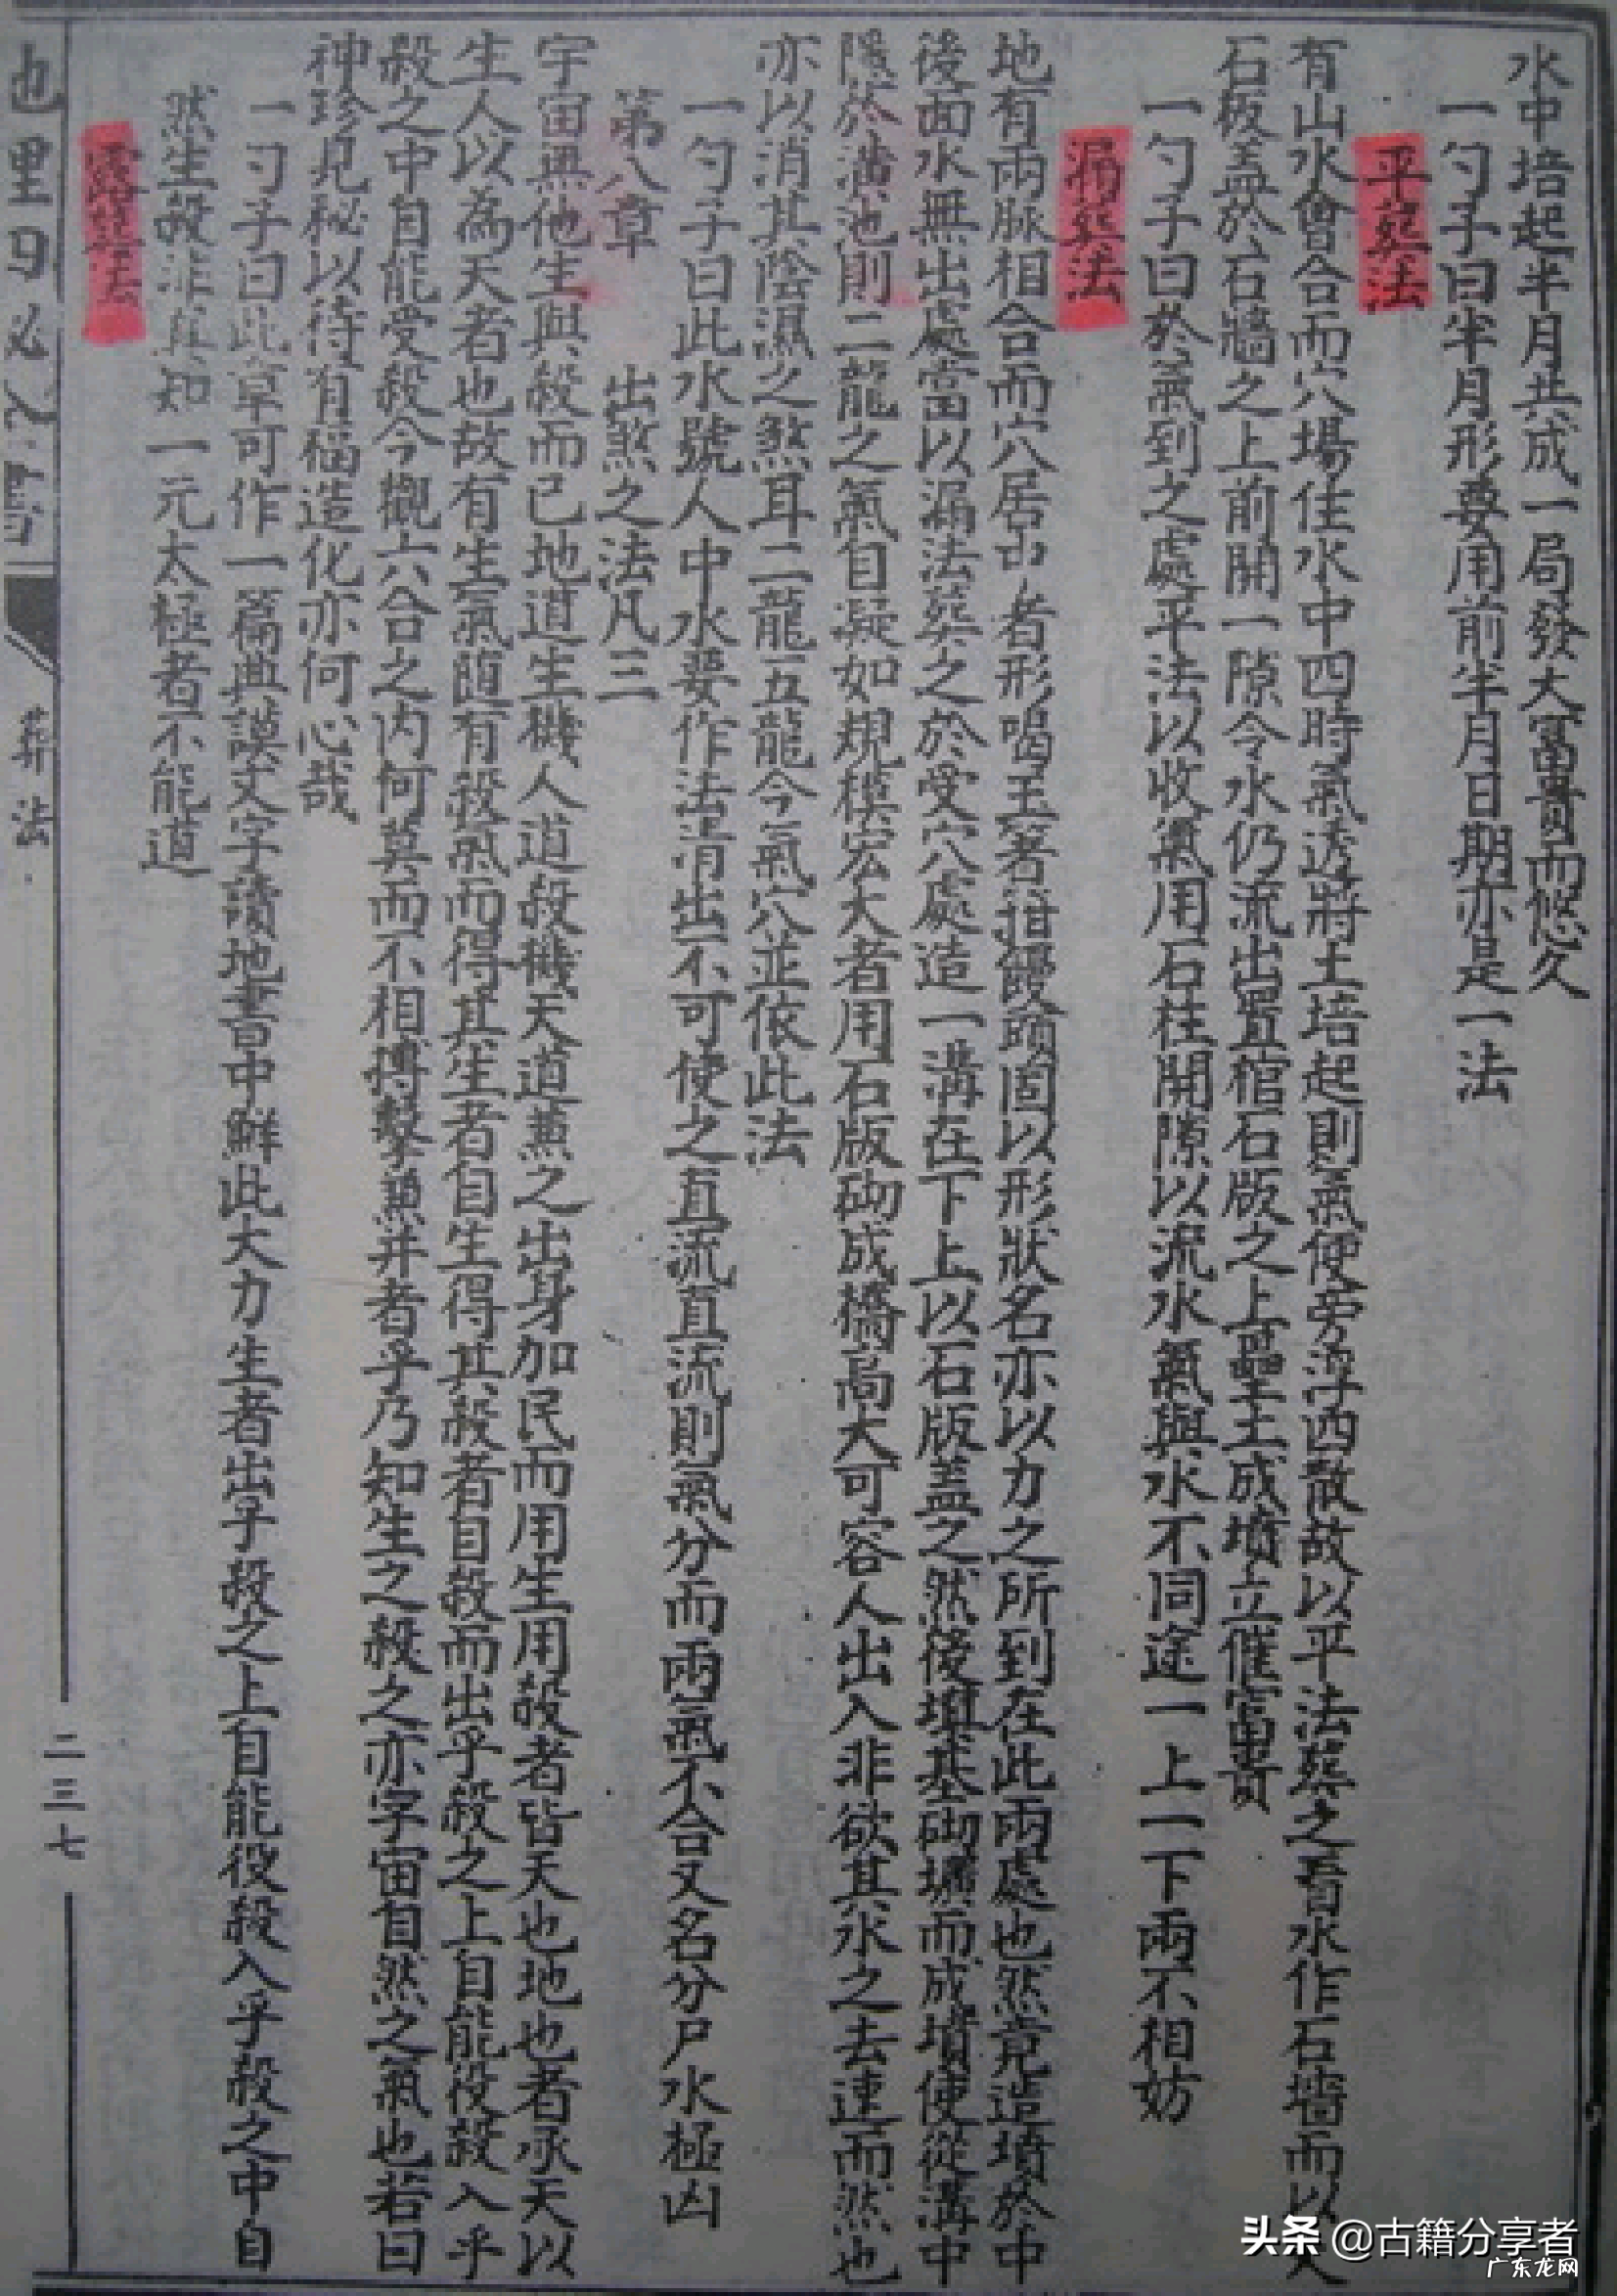 水中培起半月共成一局發大富貴而悠久
一勺子曰半月形要用前半月日期亦是一法
平葬法
有山水會合而穴場住水中四時氣透將土培起則氣便旁浮四散故以平法葬之看水作石墻而以大
石板盖於石牆之上前開一隙令水仍流出置棺石版之上壘土成墳立催富貴
一勺子曰於氣到之處平法以收氣用石柱開隙以流水氣與水不同途一上一下兩不相妨
漏葬法
地有兩脉相合而穴居中者形喝王著箝饅頭固以形狀名亦以力之所到在此兩處也然竟造墳於中
後面水無出處當以漏法葬之於受穴處造一溝在下上以石版盖之然後填基砌壙而成墳使從溝中
隱於溝池則二龍之氣自凝如規模宏大者用石版砌成橋高大可容人出入非欲其水之去速而然也
亦以消其陰濕之煞耳二龍五龍今氣穴並依此法
一勺子曰此水號人中水要作法消出不可使之直流直流則氣分而兩氣不合又名分尸水極凶
第八章 出煞之法凡三
宇宙無他生與殺而已地道生機人道殺機天道兼之出身加民而用生用殺者皆天也地也者承天以
生人以為天者也故有生氣随有殺氣而得其生者自生得其殺者自殺而出乎殺之上自能役殺入乎
殺之中自能受殺今觀六合之内何莫而不相搏擊兼并者乎乃知生之殺之亦宇宙自然之氣也若曰
神珍見秘以待有福造化亦何心哉
一勺子曰此章可作一篇典謨文字讀地書中鮮此大力生者出乎殺之上自能役殺入乎殺之中自
然生殺非真知一元太極者不能道
露葬法
葬法
二三七
头条 @古籍分享者
广东龙网